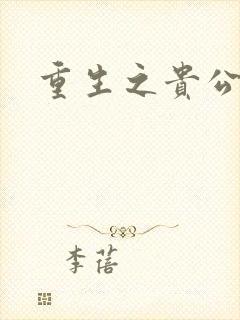 重生之貴公
李蓓